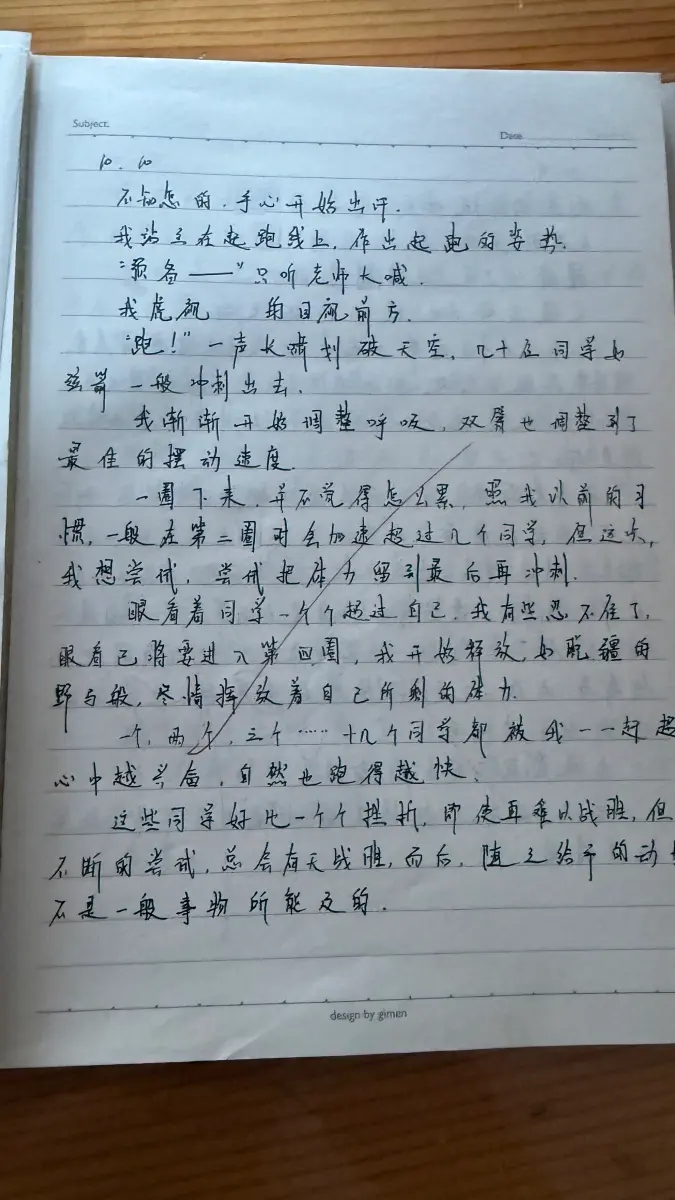 Subject.
Date
10. 10
不知怎的，手心开始出汗.
我站立在起跑线上，作出起跑的姿势.
“预备——”只听老师大喊.
我虎视 的目视前方.
“跑！”一声长啸划破天空，几十位同学如
弦箭一般冲刺出去.
我渐渐开始调整呼吸，双臂也调整到了
最佳的摆动速度.
一圈下来，并不觉得怎么累，照我以前的习
惯，一般在第二圈时会加速超过几个同学，但这次，
我想尝试，尝试把体力留到最后再冲刺.
眼看着同学一个个超过自己，我有些忍不住了，
眼看已将要进入第四圈，我开始释放，如脱疆的
野马般，尽情挥放着自己所剩的体力.
一个，两个，三个……十几个同学都被我一一赶超
心中越兴奋，自然也跑得越快.
这些同学好比一个个挫折，即使再难以战胜，但
不断的尝试，总会有天战胜，而后，随之给予的动
不是一般事物所能及的.
design by gimen